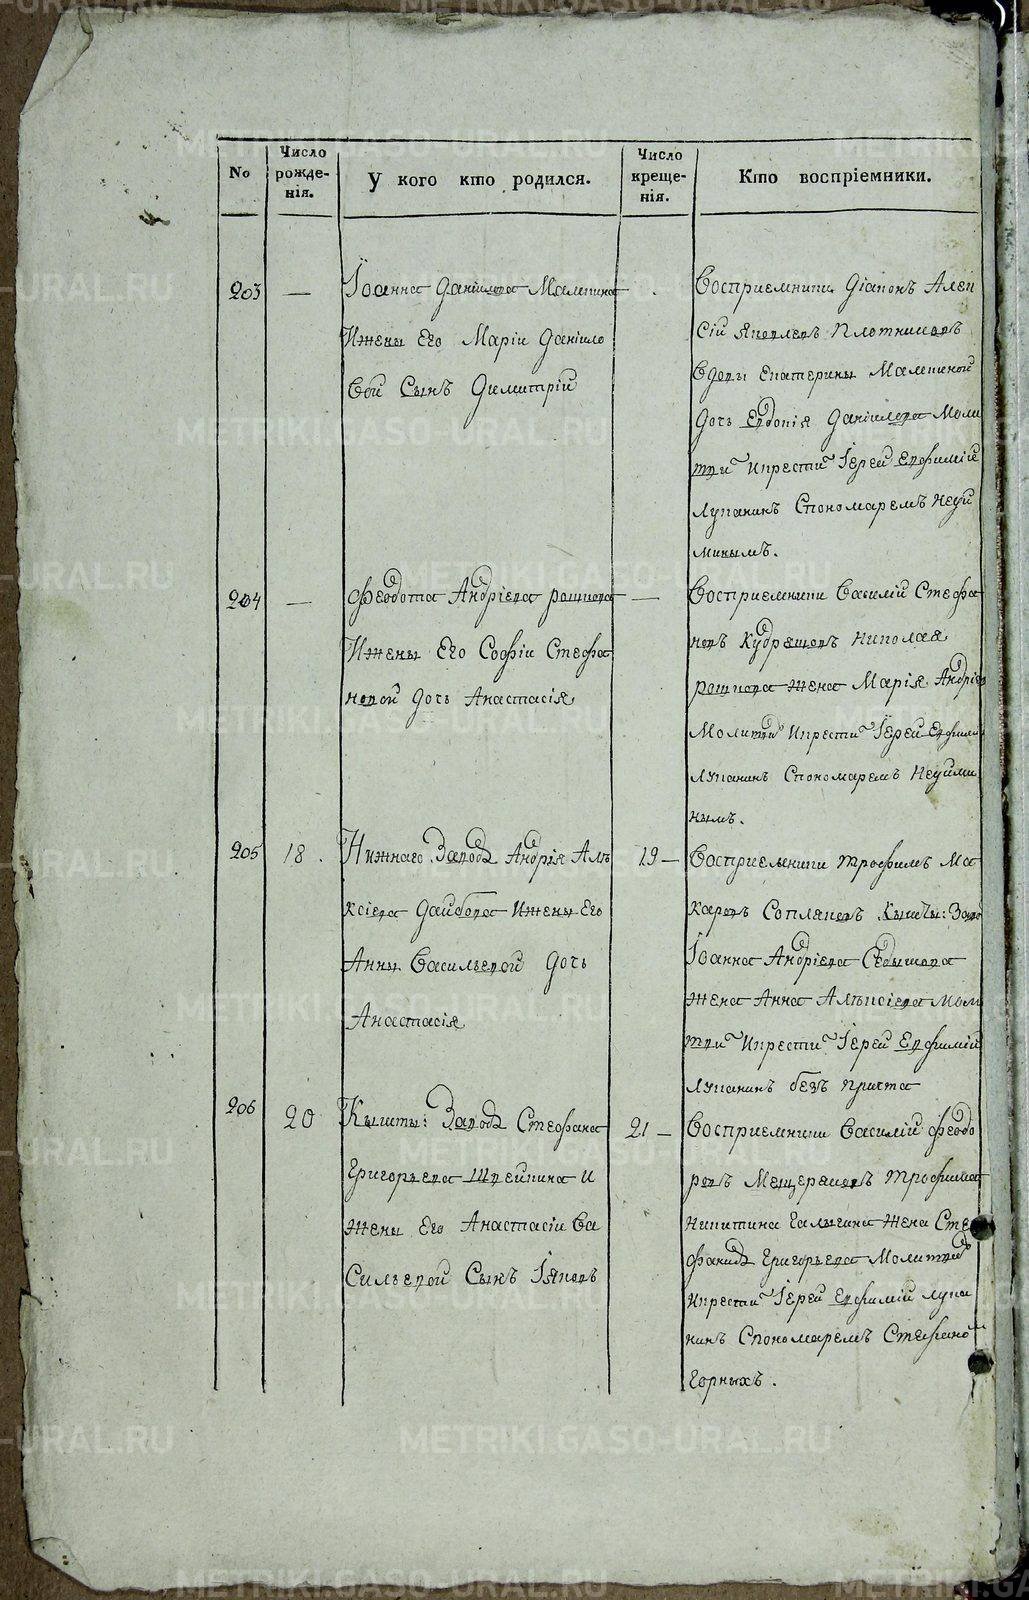 No
Число рожденія.
У кого кто родился.
Число крещенія.
Кто воспріемники.
203
—
Іоанна Даніилова Малетина
Ижены Его Маріи Даніило
вой Сынъ Димитрій
Восприемники Діаконъ Алек
сій Яковлевъ Плотниковъ
вдовы Екатерины Малетиной
дочь Евдокія Даніилова Моли
тви Икрести Іерей Евфимій
Лупанинъ Спономаремъ Неуй
минымъ.
204
—
Феодота Андріева
Ижены Его Софіи Стефа
новой дочь Анастасія
—
Восприемники Василій Стефа
новъ Кудрешовъ Николая
жена Марія Андріев
Молитви Икрести Іерей Евфимі
Лупанинъ Спономаремъ Неуйми
нымъ.
205
18.
Нижнаго Завода Андрія Але
ксіева Ижены Его
Анны Васильевой дочь
Анастасія
19 —
Восприемники Трофимъ Ма
каровъ Сопляковъ Кышты: Заво
Іоанна Андріева Седышова
жена Анна Алексіева Мол
тви Икрести Іерей Евфимій
Лупанинъ безъ причта
206
20
Кышты: Завода Стефана
Григорьева Швейкина И
жены Его Анастасіи Ва
Сильевой Сынъ Іяковъ
21 —
Восприемники Василій Феодо
ровъ Мещеряковъ Трофима
Никитина Галыгина жена Сте
фанида Григорьева Молитви
Икрести Іерей Евфимій Лупа
нинъ Спономаремъ Стефаном
Горныхъ.
METRIKI.GASO-URAL.RU